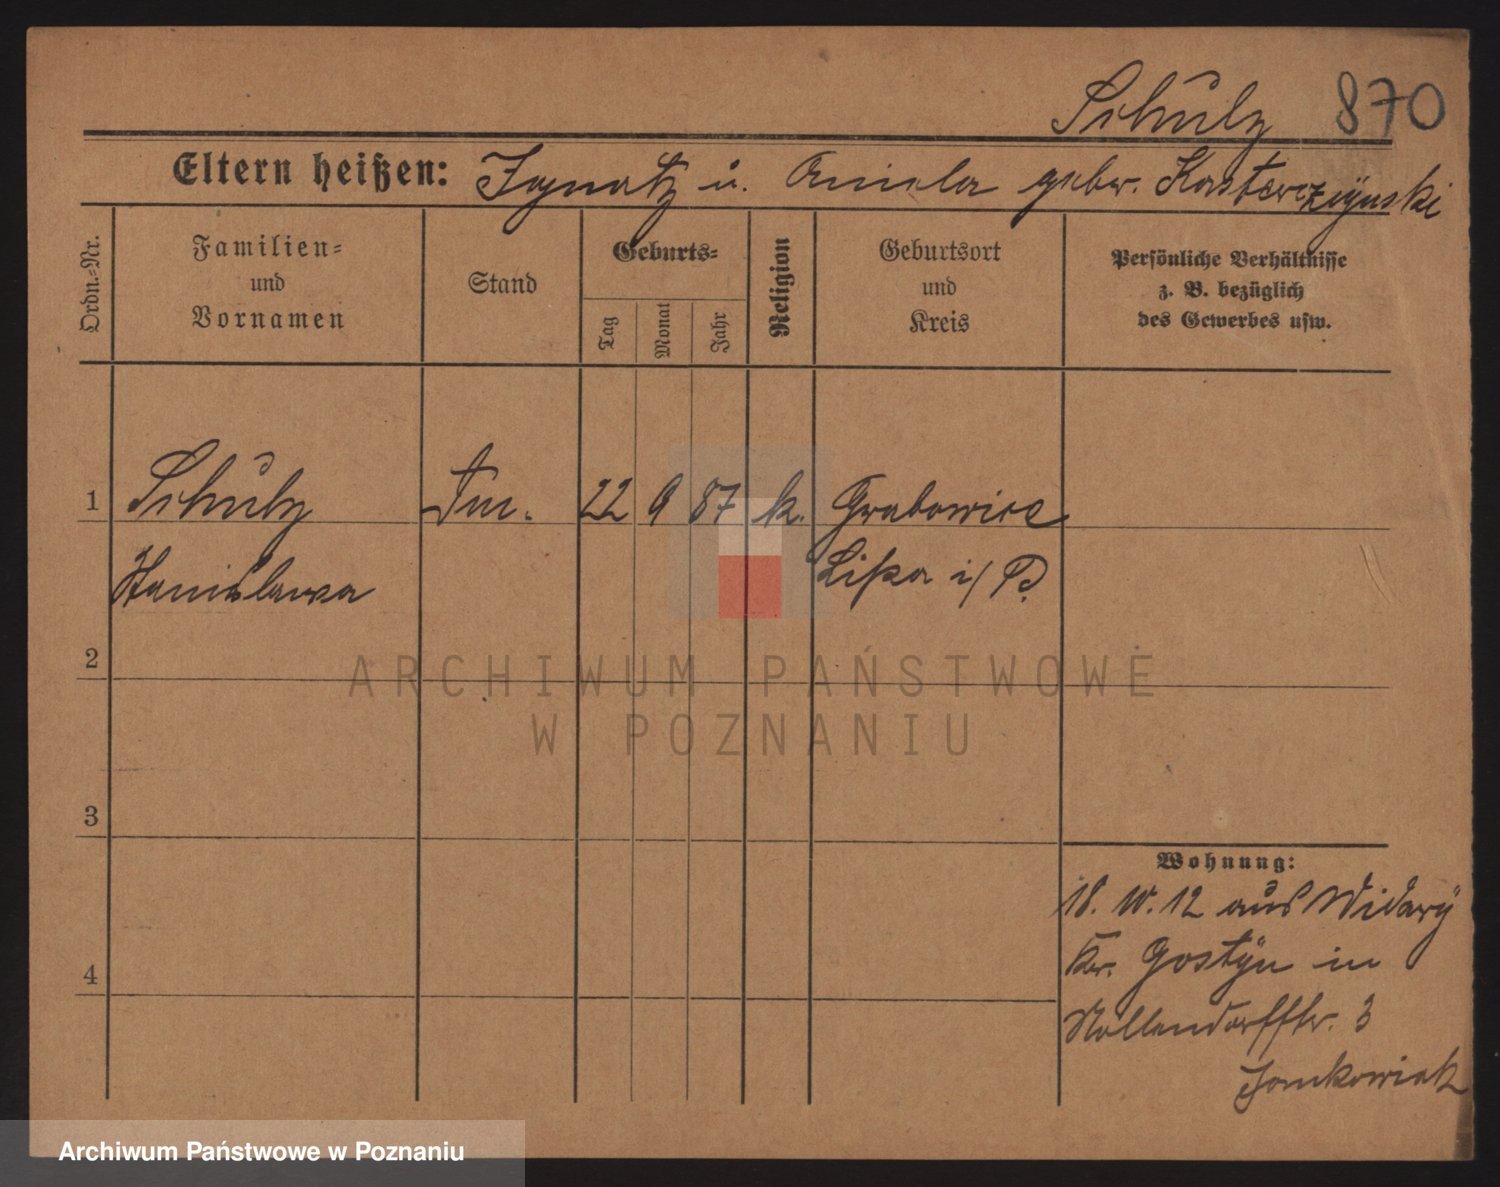 Schulz 870
Eltern heißen: Ignatz u. Aniela gebr. Kasterczÿnski
Ordn.=Nr.
Familien=
und
Vornamen
Stand
Geburts=
Tag
Monat
Jahr
Religion
Geburtsort
und
Kreis
Persönliche Verhältnisse
z. B. bezüglich
des Gewerbes usw.
1 Schulz 22 9 87 k. Grabowice
Stanislawa Lissa i/P.
2
ARCHIWUM PAŃSTWOWE
W POZNANIU
3
Wohnung:
18. 10. 12 aus Widawÿ
Kr. Gostÿn in
4
Nollendorffstr. 3
Jankowiak
Archiwum Państwowe w Poznaniu